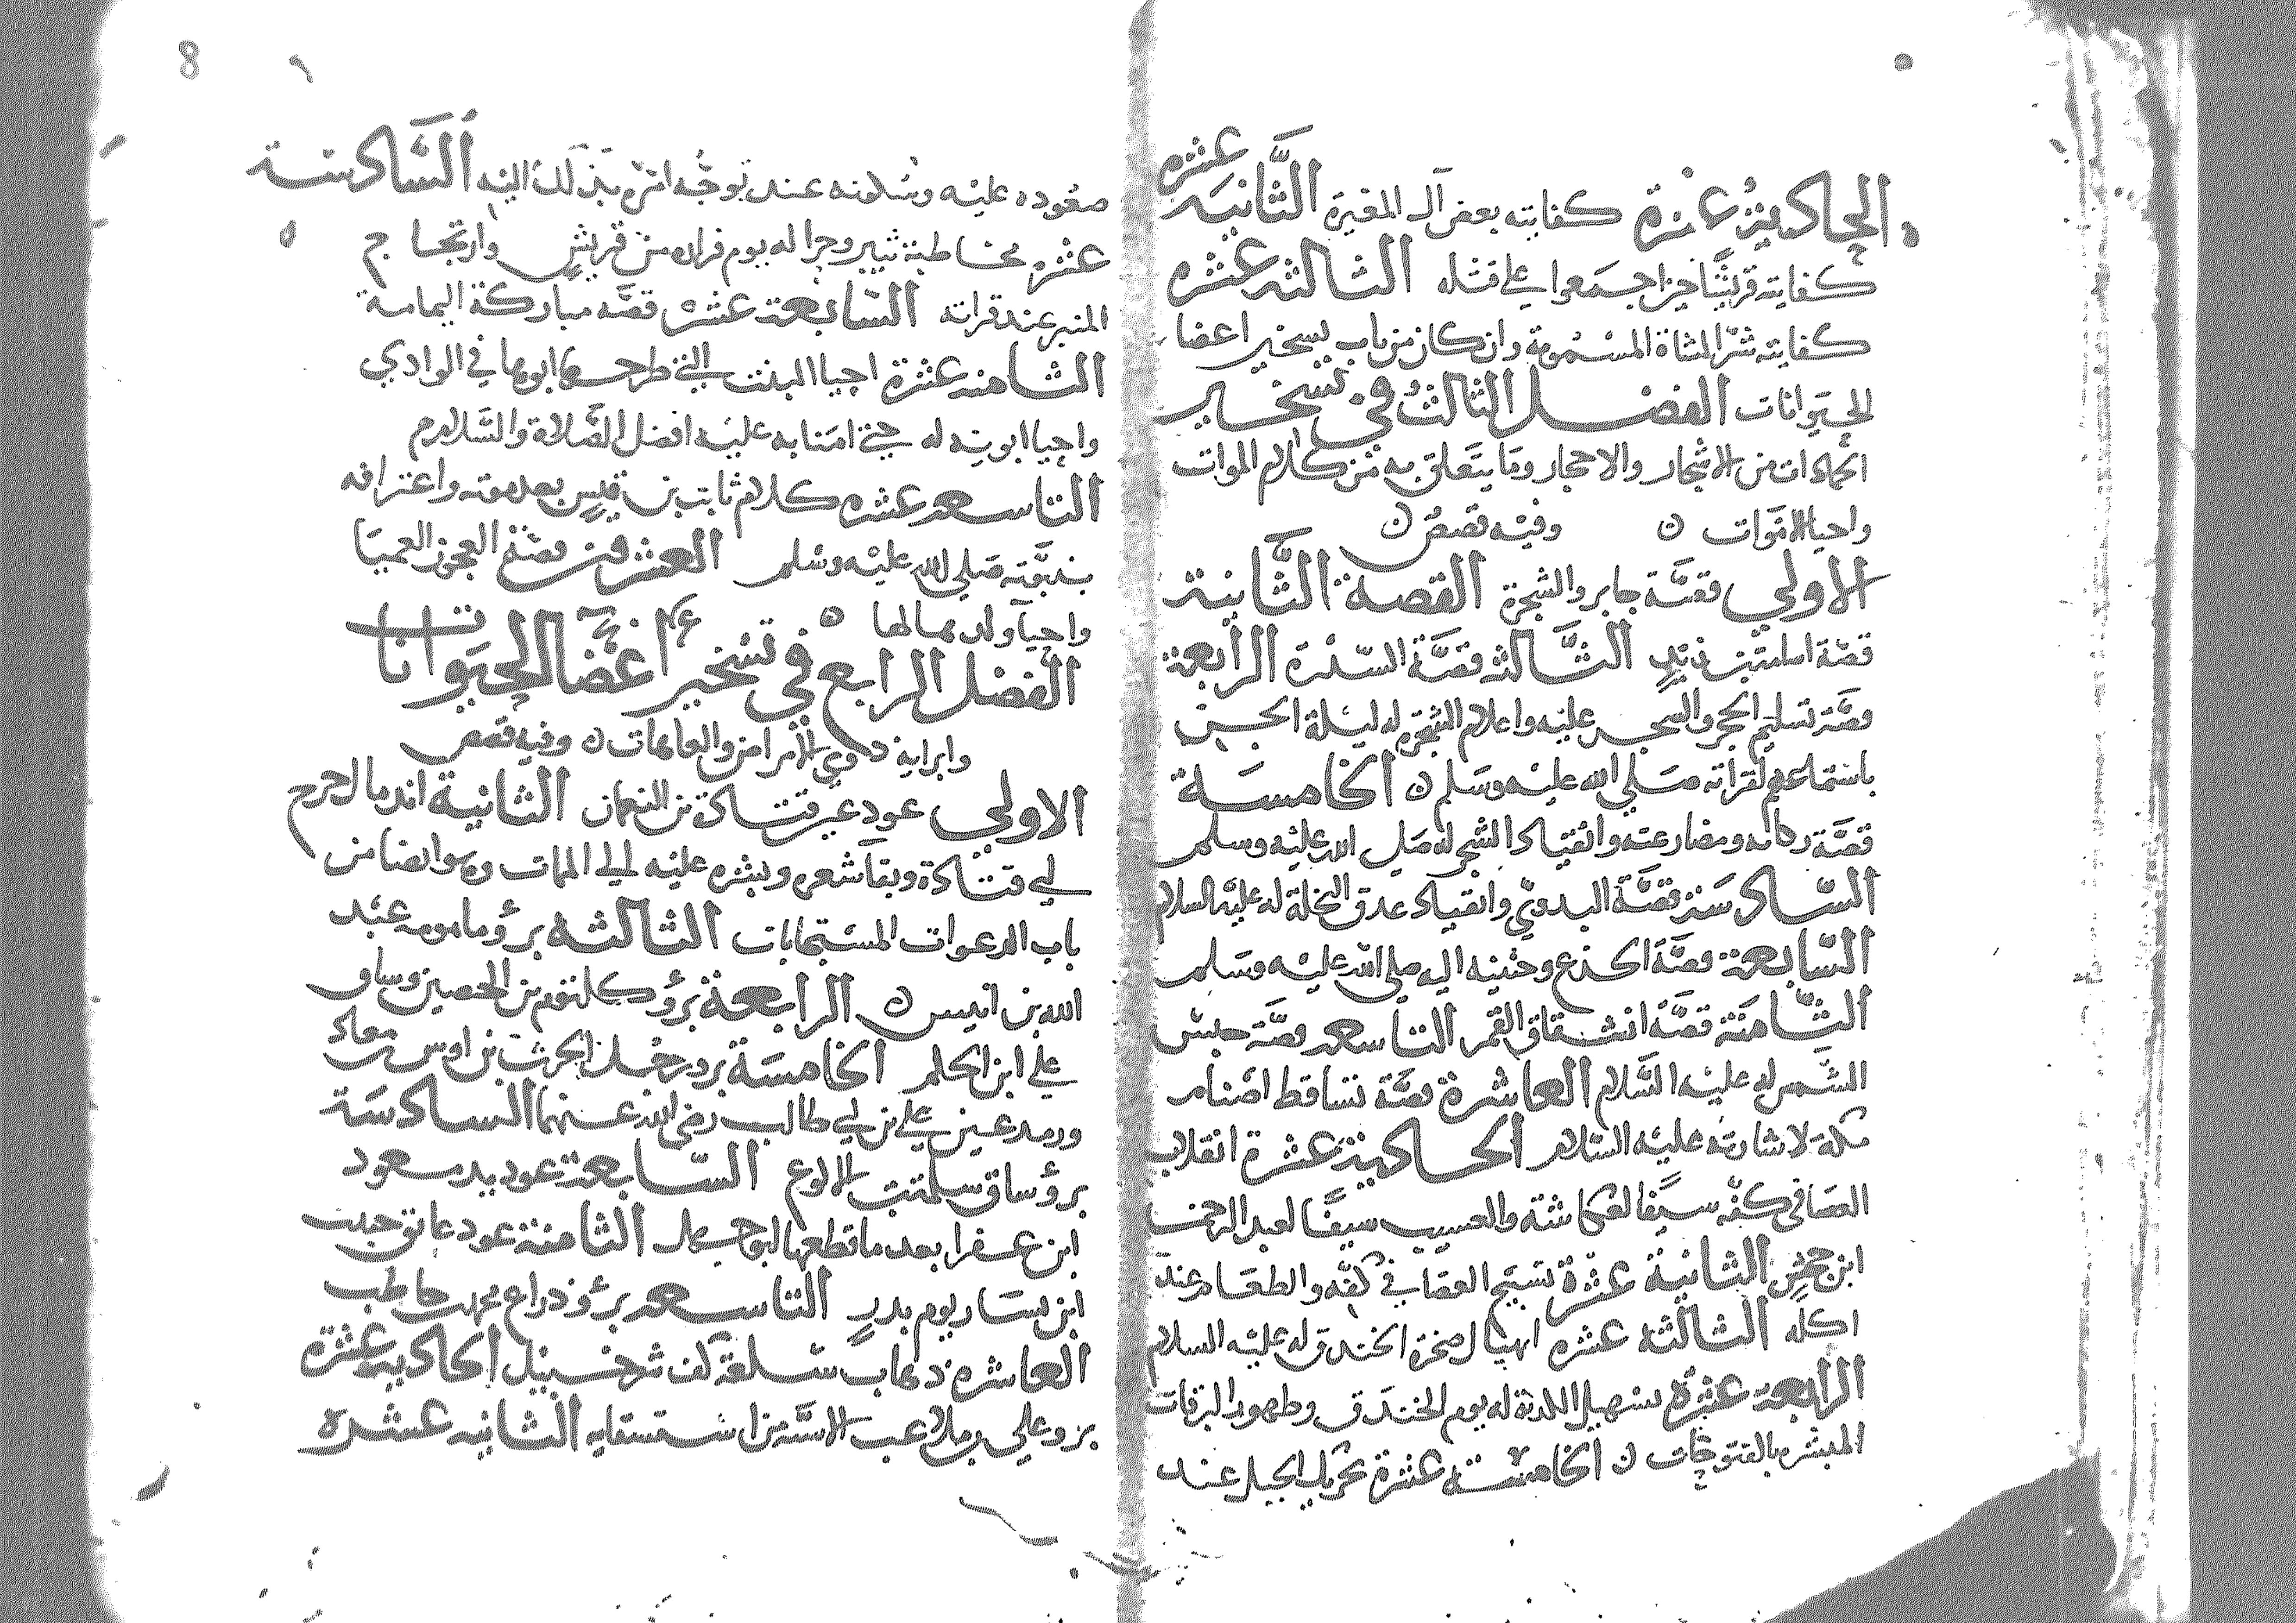 الحادية عشرة كفايته بعض آل المغيرة الثانية عشره
كفايته قريشا حين اجمعوا على قتله الثالثه عشره
كفايته شر الشاة المسمومة وان كان من باب تسخير اعضا
الحيوانات الفصل الثالث في تسخير
الجمادات من الاشجار والاحجار وما يتعلق به من كلام الموات
واحيا الاموات ن وفيه قصص ن
الاولي قصة جابر والشجرة القصة الثانية
قصة اسامة بن زيد الثالثه قصة السدرة الرابعة
قصة تسليم الحجر والشجر عليه واعلام الشجرة له ليلة الجن
باستماعهم لقراته صلي الله عليه وسلم ن الخامسة
قصة ركانه ومصارعته وانقياد الشجر له صلى الله عليه وسلم
السادسة قصة البدوي وانقياد عدق النخلة له عليه السلام
السابعة قصة الجذع وحنينه اليه صلى الله عليه وسلم
الثامنة قصة انشقاق القمر التاسعه قصة حبس
الشمس له عليه السلام العاشرة قصة تساقط اصنام
مكة لاشارته عليه السلام الحادية عشرة انقلاب
العصا في كفه سيفا لعكاشة والعسيب سيفا لعبد الرحمن
ابن جحش الثانية عشرة تسبيح الحصا في كفه والطعام عند
اكله الثالثه عشره انهيال صخرة الخندق له عليه السلام
الرابعة عشرة تسهيل الكدية له يوم الخندق وظهور البرقات
المبشره بالفتوحات ن الخامسة عشرة تحريك الجبل عند
8 ٩
صعوده عليه وسكونه عند توجه امره بذلك اليه السادسة
عشره مخاطبة ثبير وحرا له يوم فراره من قريش وارتجاج
المنبر عند قراته السابعة عشر قصة مباركة اليمامة
الثامنه عشرة احيا البنت التي طرحها ابوها في الوادي
واحيا ابويه له حتى امنا به عليه افضل الصلاة والسلام
التاسعه عشره كلام ثابت بن قيس بعد موته واعترافه
بنبوته صلي الله عليه وسلم العشرون قصة العجوز العميا
واحيا ولدها لها ن
الفصل الرابع في تسخير اعضا الحيوانات
وابرايه ذوي الامراض والعاهات ن وفيه قصص
الاولي عود عين قتادة بن النعمان الثانية اندمال جرح
ابي قتادة وبقا شعره وبشره عليه الي الممات وهو ايضا من
باب الدعوات المستجابات الثالثه برؤ مامومه عبد
الله بن انيس ن الرابعة برؤ كلثوم بن الحصين وساق
علي ابن الحكم الخامسة برو رجل الحرث بن اوس معاد
ورمد عين علي بن ابي طالب رضي الله عنهما السادسة
برؤ ساق سلمة بن الاكوع السابعة عود يد مسعود
ابن عفرا بعد ما قطعها ابو جهل الثامنة عود عاتق خبيب
ابن يساف يوم بدر التاسعه برؤ ذراع محمد حاطب
العاشره ذهاب سلعة كف شرحبيل الحادية عشرة
برو علي وملاعب الاسنة من استسقايه الثانيه عشره